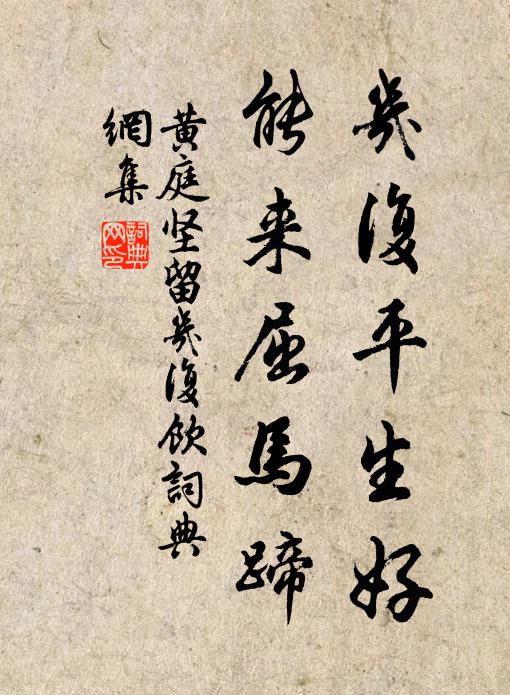 幾復平生好
能来屈馬蹄
黄庭坚留幾復飲詞典
網集
詞典
网印